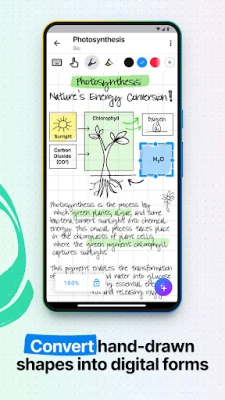 Photosynthesis
Bio
Photosynthesis
Nature's Energy Conversion!
Sunlight
Chlorophyll
Oxygen
Carbon
Dioxide
(CO²)
H₂O
Photosynthesis is the process by
which green plants, algae, and some
bacteria convert sunlight into chemical
energy. This crucial process takes place
in the chloroplasts of plant cells,
where the green pigment chlorophyll
captures sunlight.
This pigment enables the transformation
of and water into glucose
essential
and releasing
100%
Convert hand-drawn
shapes into digital forms